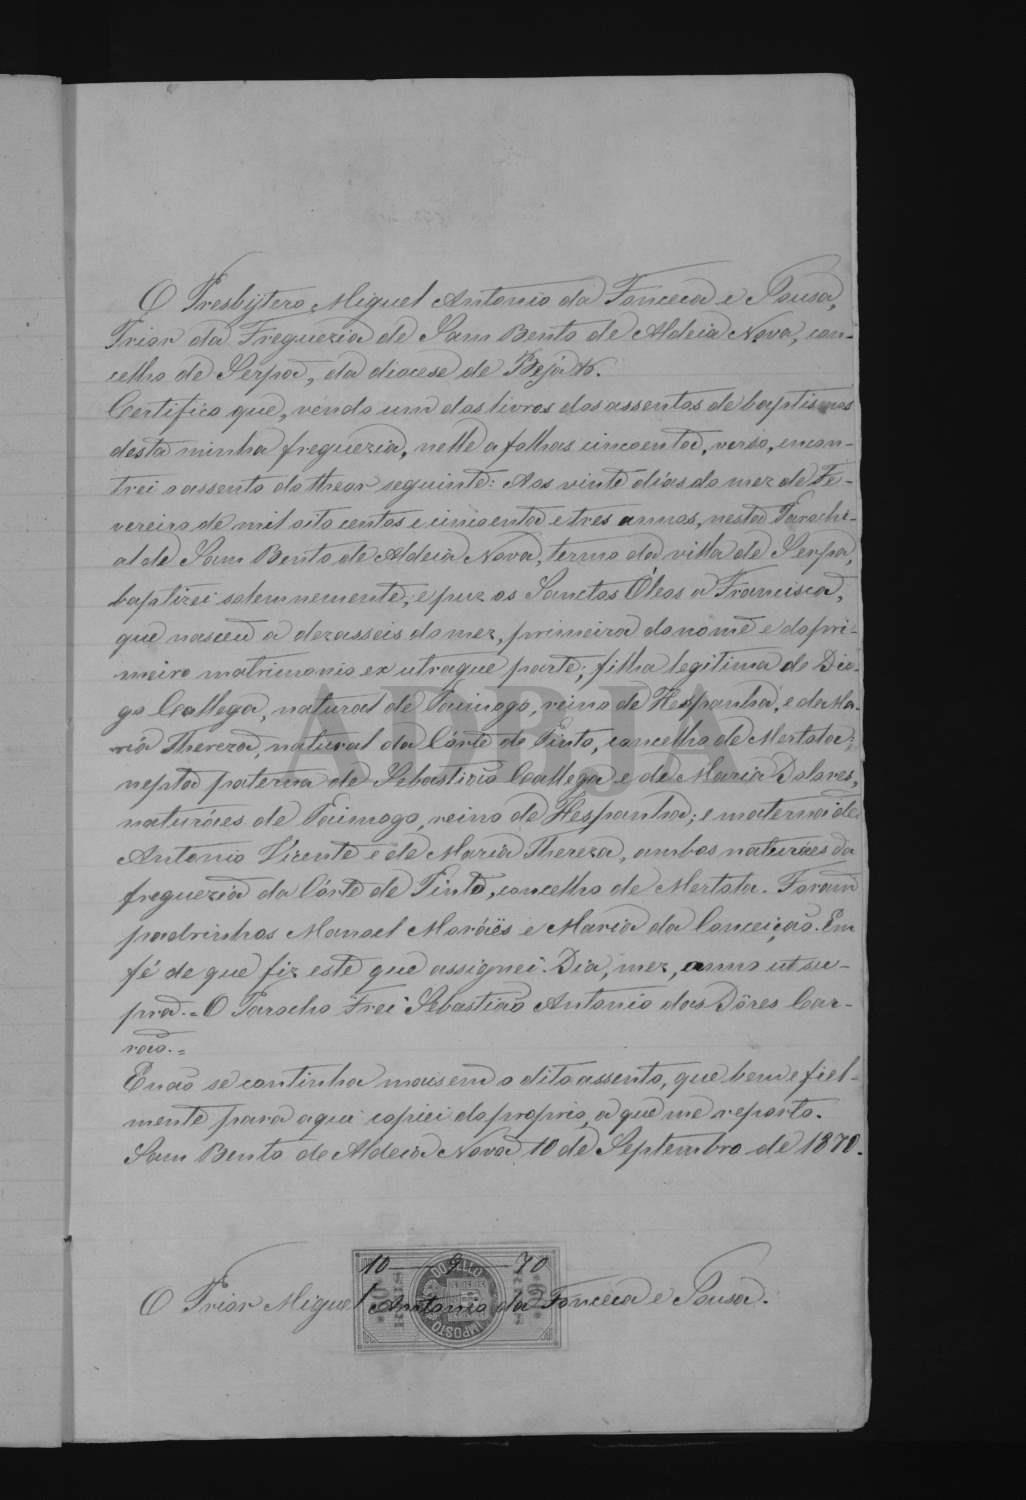 O Presbÿtero Miguel Antonio da Fonceca e Sousa,
Prior da Freguezia de Sam Bento de Aldeia Nova, con-
celho de Serpa, da diocese de Beja &.
Certifico que, vendo um dos livros dos assentos de baptismos
desta minha freguezia, nelle a folhas cincoenta, verso, encon-
trei o assento do theor seguinte: Aos vinte dias do mez de Fe-
vereiro de mil oito centos e cincoenta e tres annos, nesta Parochi-
al de Sam Bento de Aldeia Nova, termo da villa de Serpa,
baptizei solemnemente, e puz os Sanctos Óleos a Francisca,
que nasceu a dezasseis do mez, primeira do nome e do pri-
meiro matrimonio ex utraque parte; filha legitima de Dio-
go Gallega, natural de Paimogo, reino de Hespanha, e de Ma-
ria Thereza, natural da Córte do Pinto, concelho de Mertola;
nepta paterna de Sebastião Gallega e de Maria Dolores,
naturáes de Paimogo, reino de Hespanha; e materna de
Antonio Vicente e de Maria Thereza, ambos naturáes da
freguezia da Córte do Pinto, concelho de Mertola. Foram
padrinhos Manoel Moráës e Maria da Conceição. Em
fé de que fiz este que assignei. Dia, mez, anno ut su-
pra. = O Parocho Frei Sebastião Antonio das Dôres Car-
rão. =
E não se continha mais em o dito assento, que bem e fiel-
mente para aqui copiei do proprio, a que me reporto.
Sam Bento de Aldeia Nova 10 de Septembro de 1870.
10 — 9 — 70
DO SELLO
O Prior Miguel Antonio da Fonceca e Sousa.
IMPOSTO
ADBJA